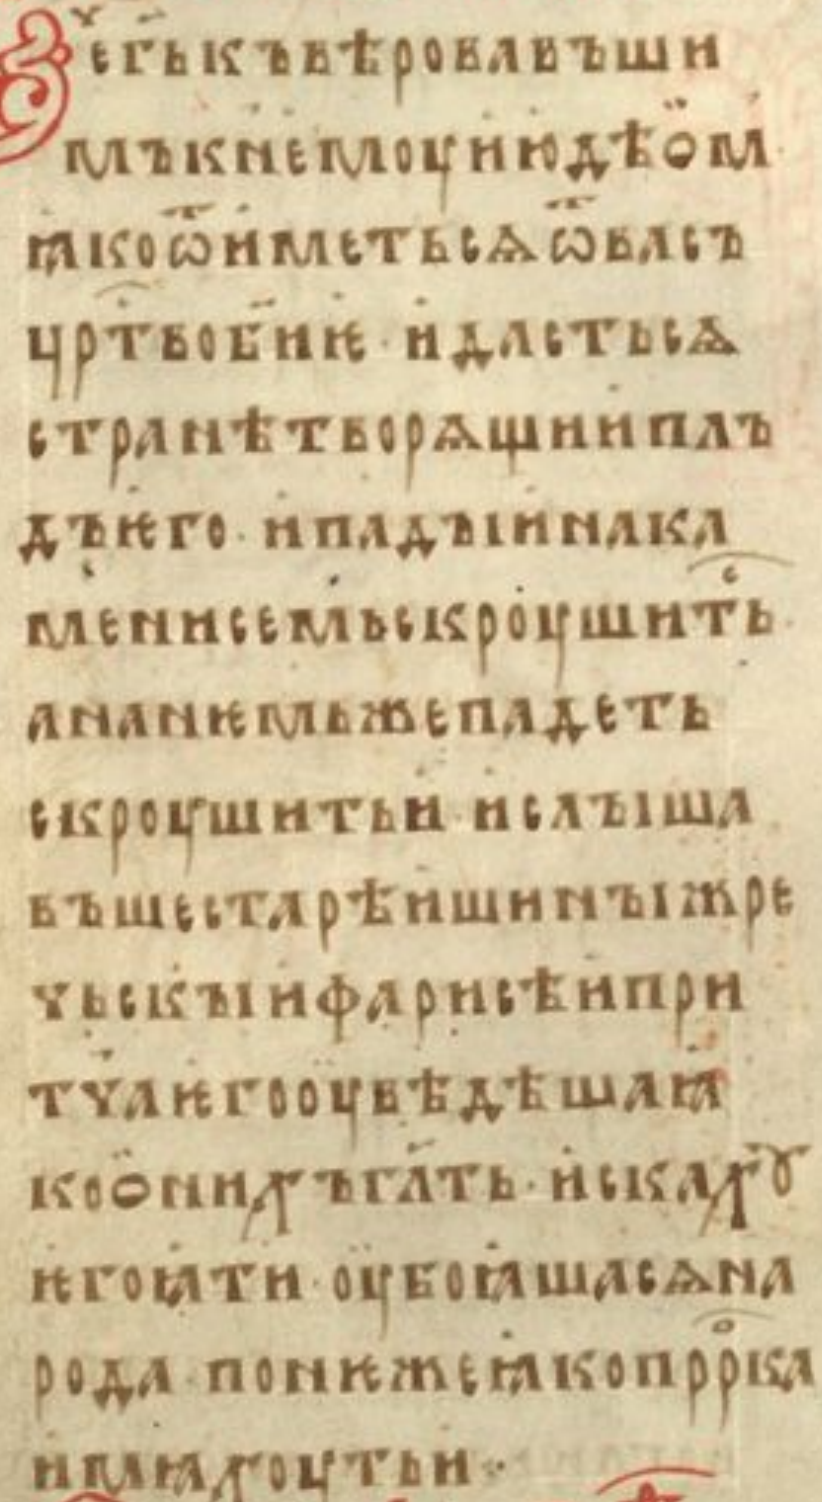 Реⷱ҇ г҃ь къ вѣровавъши
мъ к немоу июдѣомъ
ꙗко ѿиметьсѧ ѿ васъ
црⷭ҇тво бж҃иѥ · и дастьсѧ
странѣ творѧщии плъ
дъ ѥго · и падъıи на ка
мени семь скроушитⷭ҇ь
а на нѥмьже падеть
скроушить и · и слъıша
въше старѣишинъı жре
чьскъı и фарисѣи при
тчѧ ѥго оувѣдѣша ꙗ
ко о нихъ гл҃ть · искахꙋ
ѥго ꙗти · оубоꙗша сѧ на
рода понѥже ꙗко прⷪ҇рка
имꙗхоуть и ·